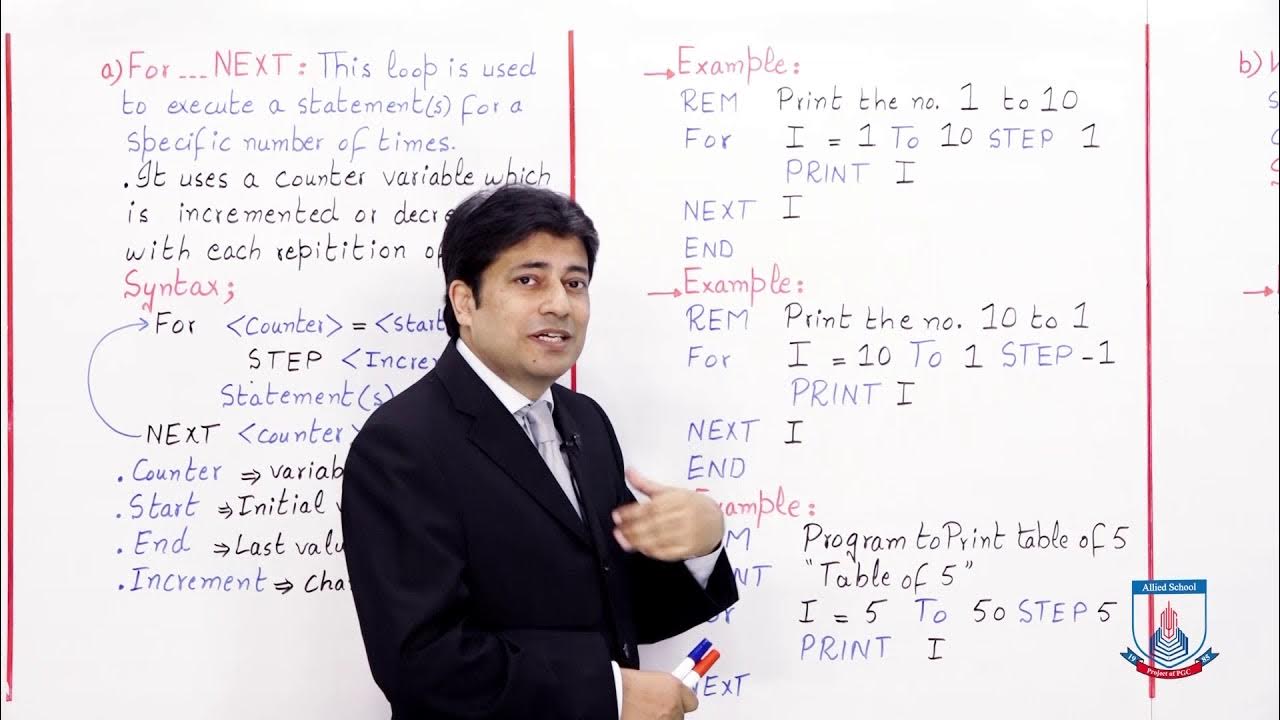 a) For ___ NEXT: This loop is used
to execute a statement(s) for a
specific number of times.
. It uses a counter variable which
is incremented or decre
with each repitition o
Syntax;
For <Counter> = <star
STEP <Incre
Statement(s)
NEXT <counter>
. Counter ⇒ variab
. Start ⇒ Initial
. End ⇒ Last valu
. Increment ⇒ cha
→ Example:
REM Print the no. 1 to 10
For I = 1 To 10 STEP 1
PRINT I
NEXT I
END
→ Example:
REM Print the no. 10 to 1
For I = 10 To 1 STEP -1
PRINT I
NEXT I
END
Example:
M Program to Print table of 5
NT "Table of 5"
or I = 5 To 50 STEP 5
PRINT I
NEXT
b)
Allied School
19 85
Project of PGC